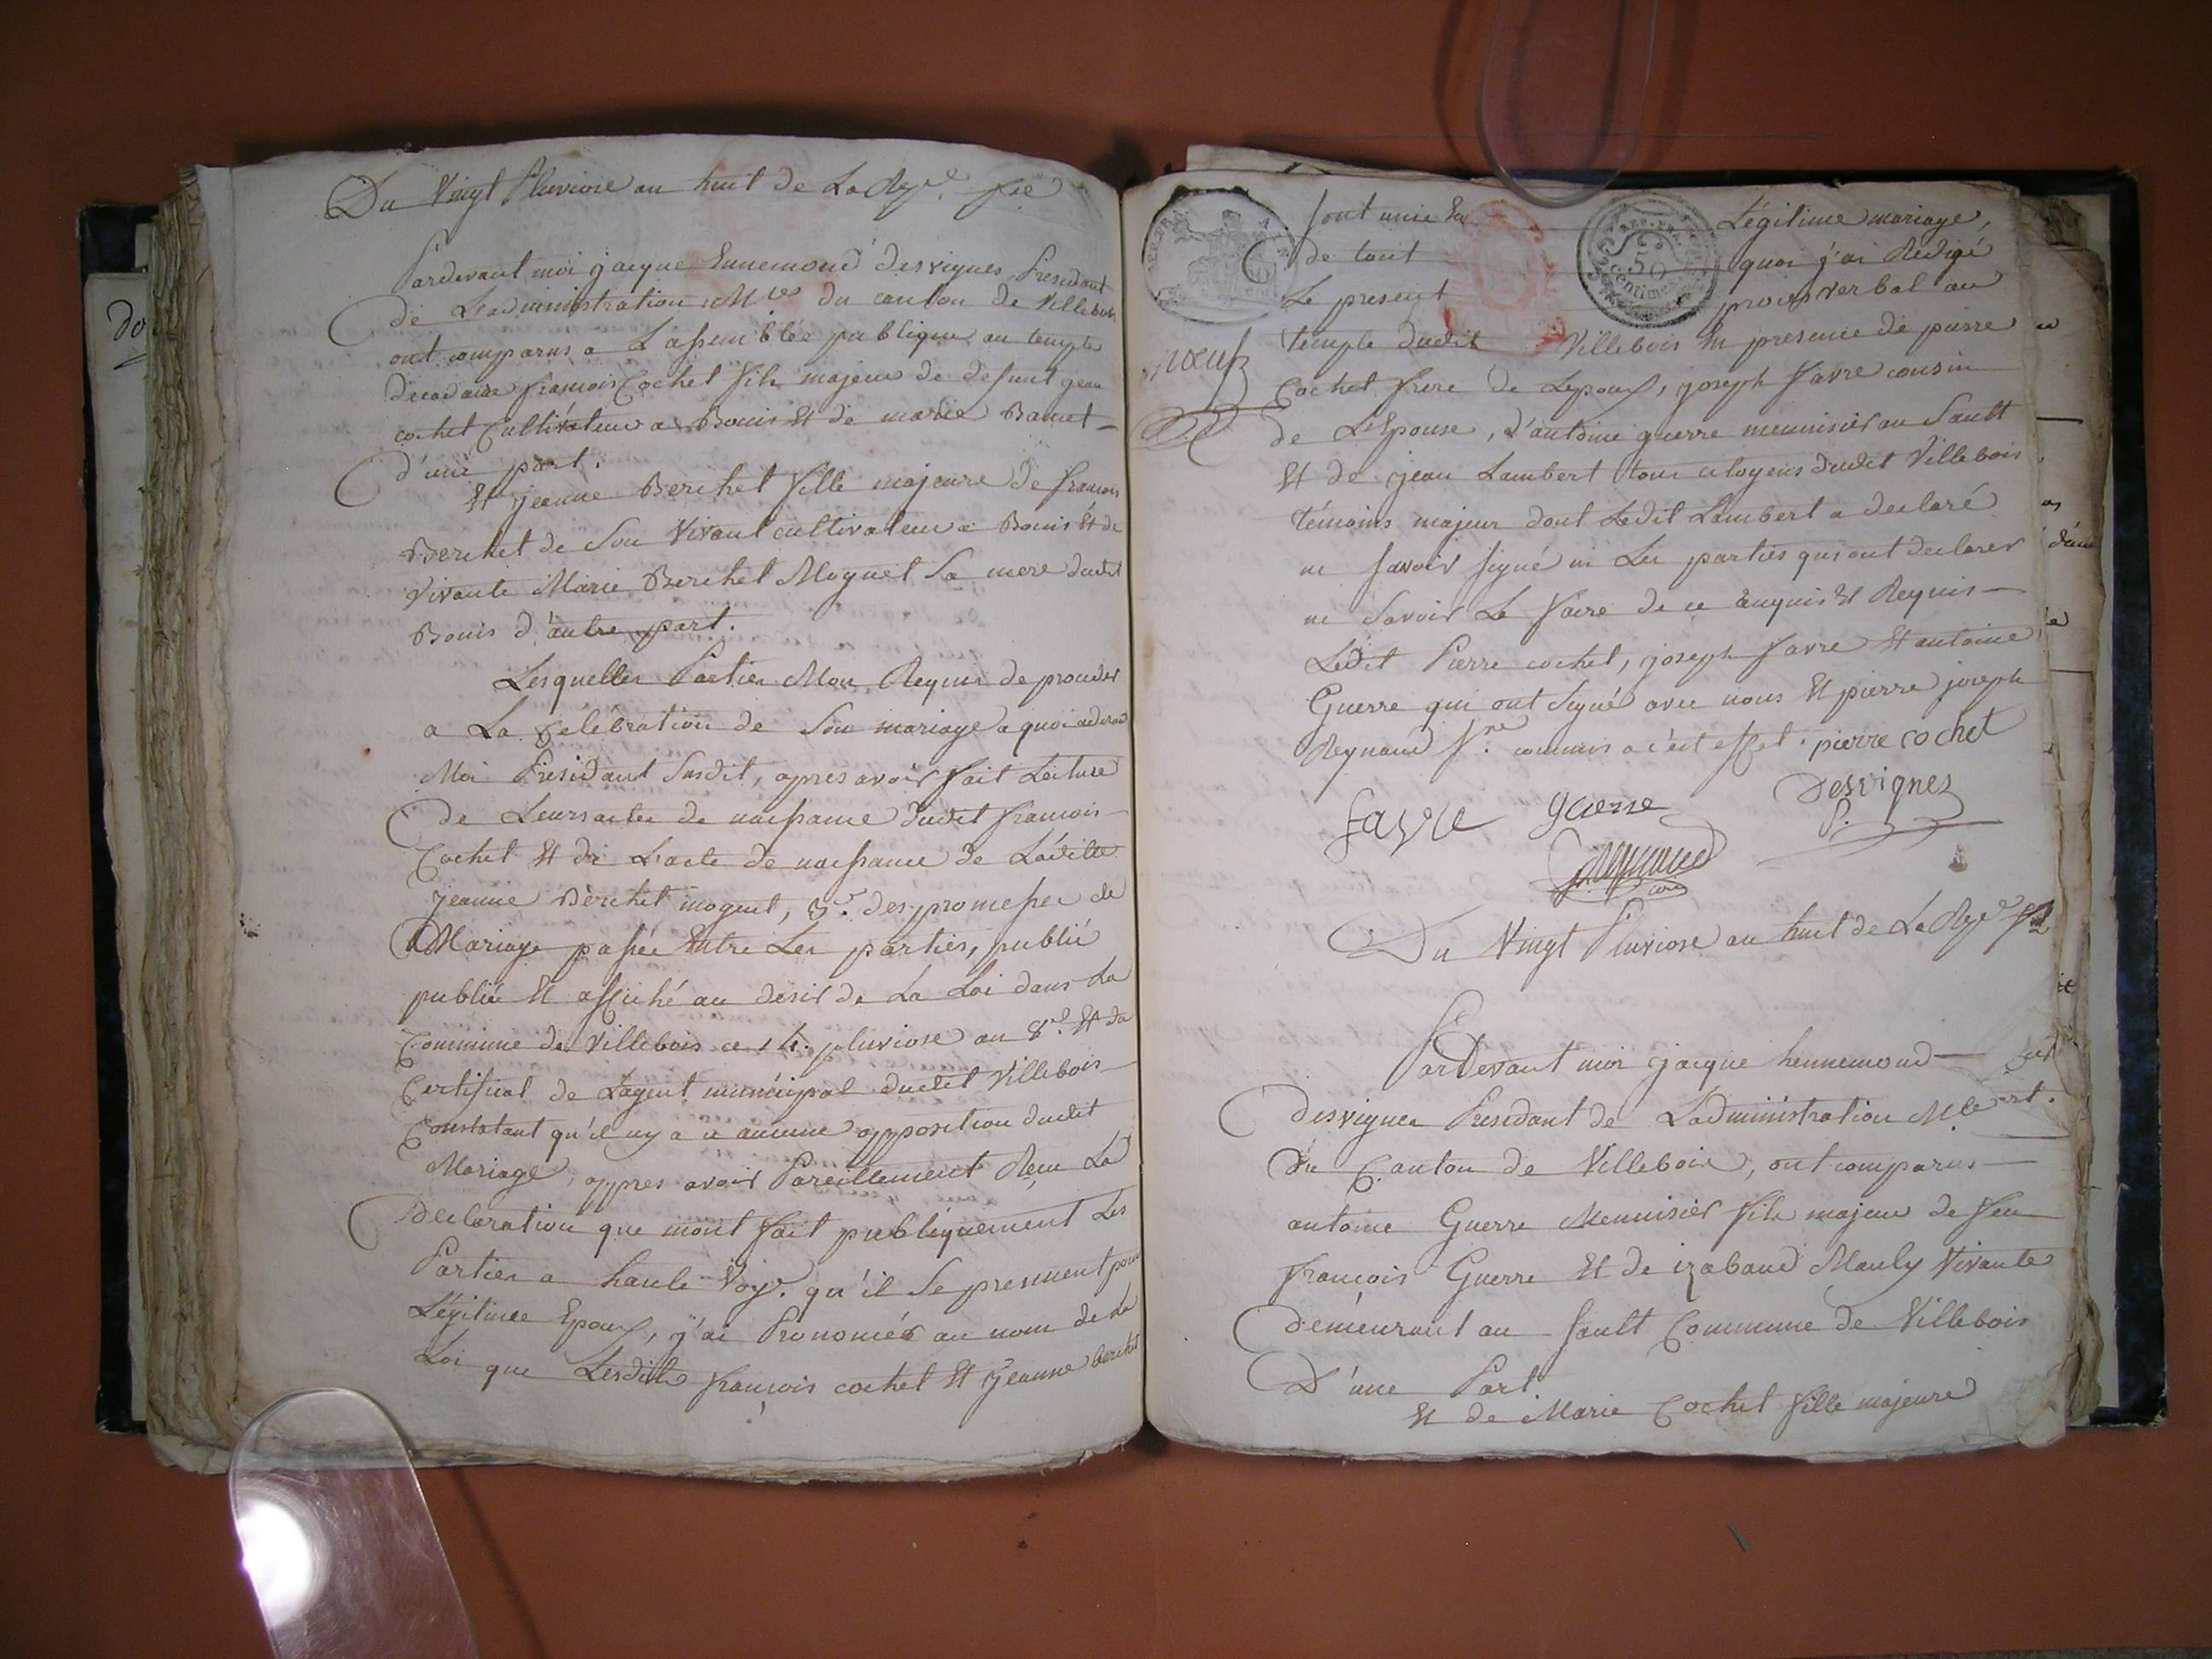 Du Vingt Pluviose an huit de La Rep.e fse
Pardevant moi jacque Ennemond desvignes Presidant
de Ladministration M.le du canton de Villebois
ont comparus a Lassemblée publique au temple
decadaire francois Cochet fils majeur de defunt jean
cochet Cultivateur a Bouis Et de marie
d'une part.
Et jeanne Berchet fille majeure de francois
Berchet de Son Vivant cultivateur a Bouis Et de
Vivante Marie Berchet Moynet Sa mere dudit
Bouis d'autre part.
Lesquelles Parties Mon Requis de proceder
a La Celebration de Son mariage a quoi
Moi Presidant Susdit, apres avoir fait Lecture
de Leurs actes de naissance dudit francois
Cochet Et de L'acte de naissance de Ladite
jeanne Berchet mognet, des promesses de
Mariage passée Entre Les parties, publié
publiée Et affiché au desir de La Loi dans La
Commune de Villebois ce 14. pluviose an 8.e Et du
Certificat de Lagent municipal dudit Villebois
Constatant qu'il ny a u aucune opposition dudit
Mariage, appres avoir Pareillement Recu La
Declaration que mont fait publiquement Les
Parties a haute Voy. qu'il Se prennent pour
Légitimee Epoux, j'ai Prononcés au nom de La
Loi que Lesdits françois cochet Et jeanne berchet
sont unie En Légitime mariage,
de tout quoi j'ai Rédigé
Le present proces verbal au
temple dudit Villebois En presence de pierre
neuf
Cochet frere de Lepoux, joseph favre cousin
de LEpouse, d'antoine guerre menuisier au Sault
Et de jean Lambert tous citoyens dudit Villebois
témoins majeur dont Ledit Lambert a declaré
ne savoir signé ni Les parties qui ont declarer
ne Savoir Le faire de ce Enquis Et Requis
Ledit Pierre cochet, joseph favre Et antoine
Guerre qui ont Signé avec nous Et pierre joseph
Reynaud commis a c'est effet. pierre cochet
favre guerre Desvignes
P.
Du Vingt Pluviose an huit de La Rep.e fse
Pardevant moi jacque hennemond
desvignes Presidant de Ladministration M.le
du Canton de Villebois, ont comparus
antoine Guerre Menuisier fils majeur de feu
françois Guerre Et de izabaud Mauly Vivante
demeurant au Sault Commune de Villebois
D'une Part
Et de Marie Cochet fille majeure